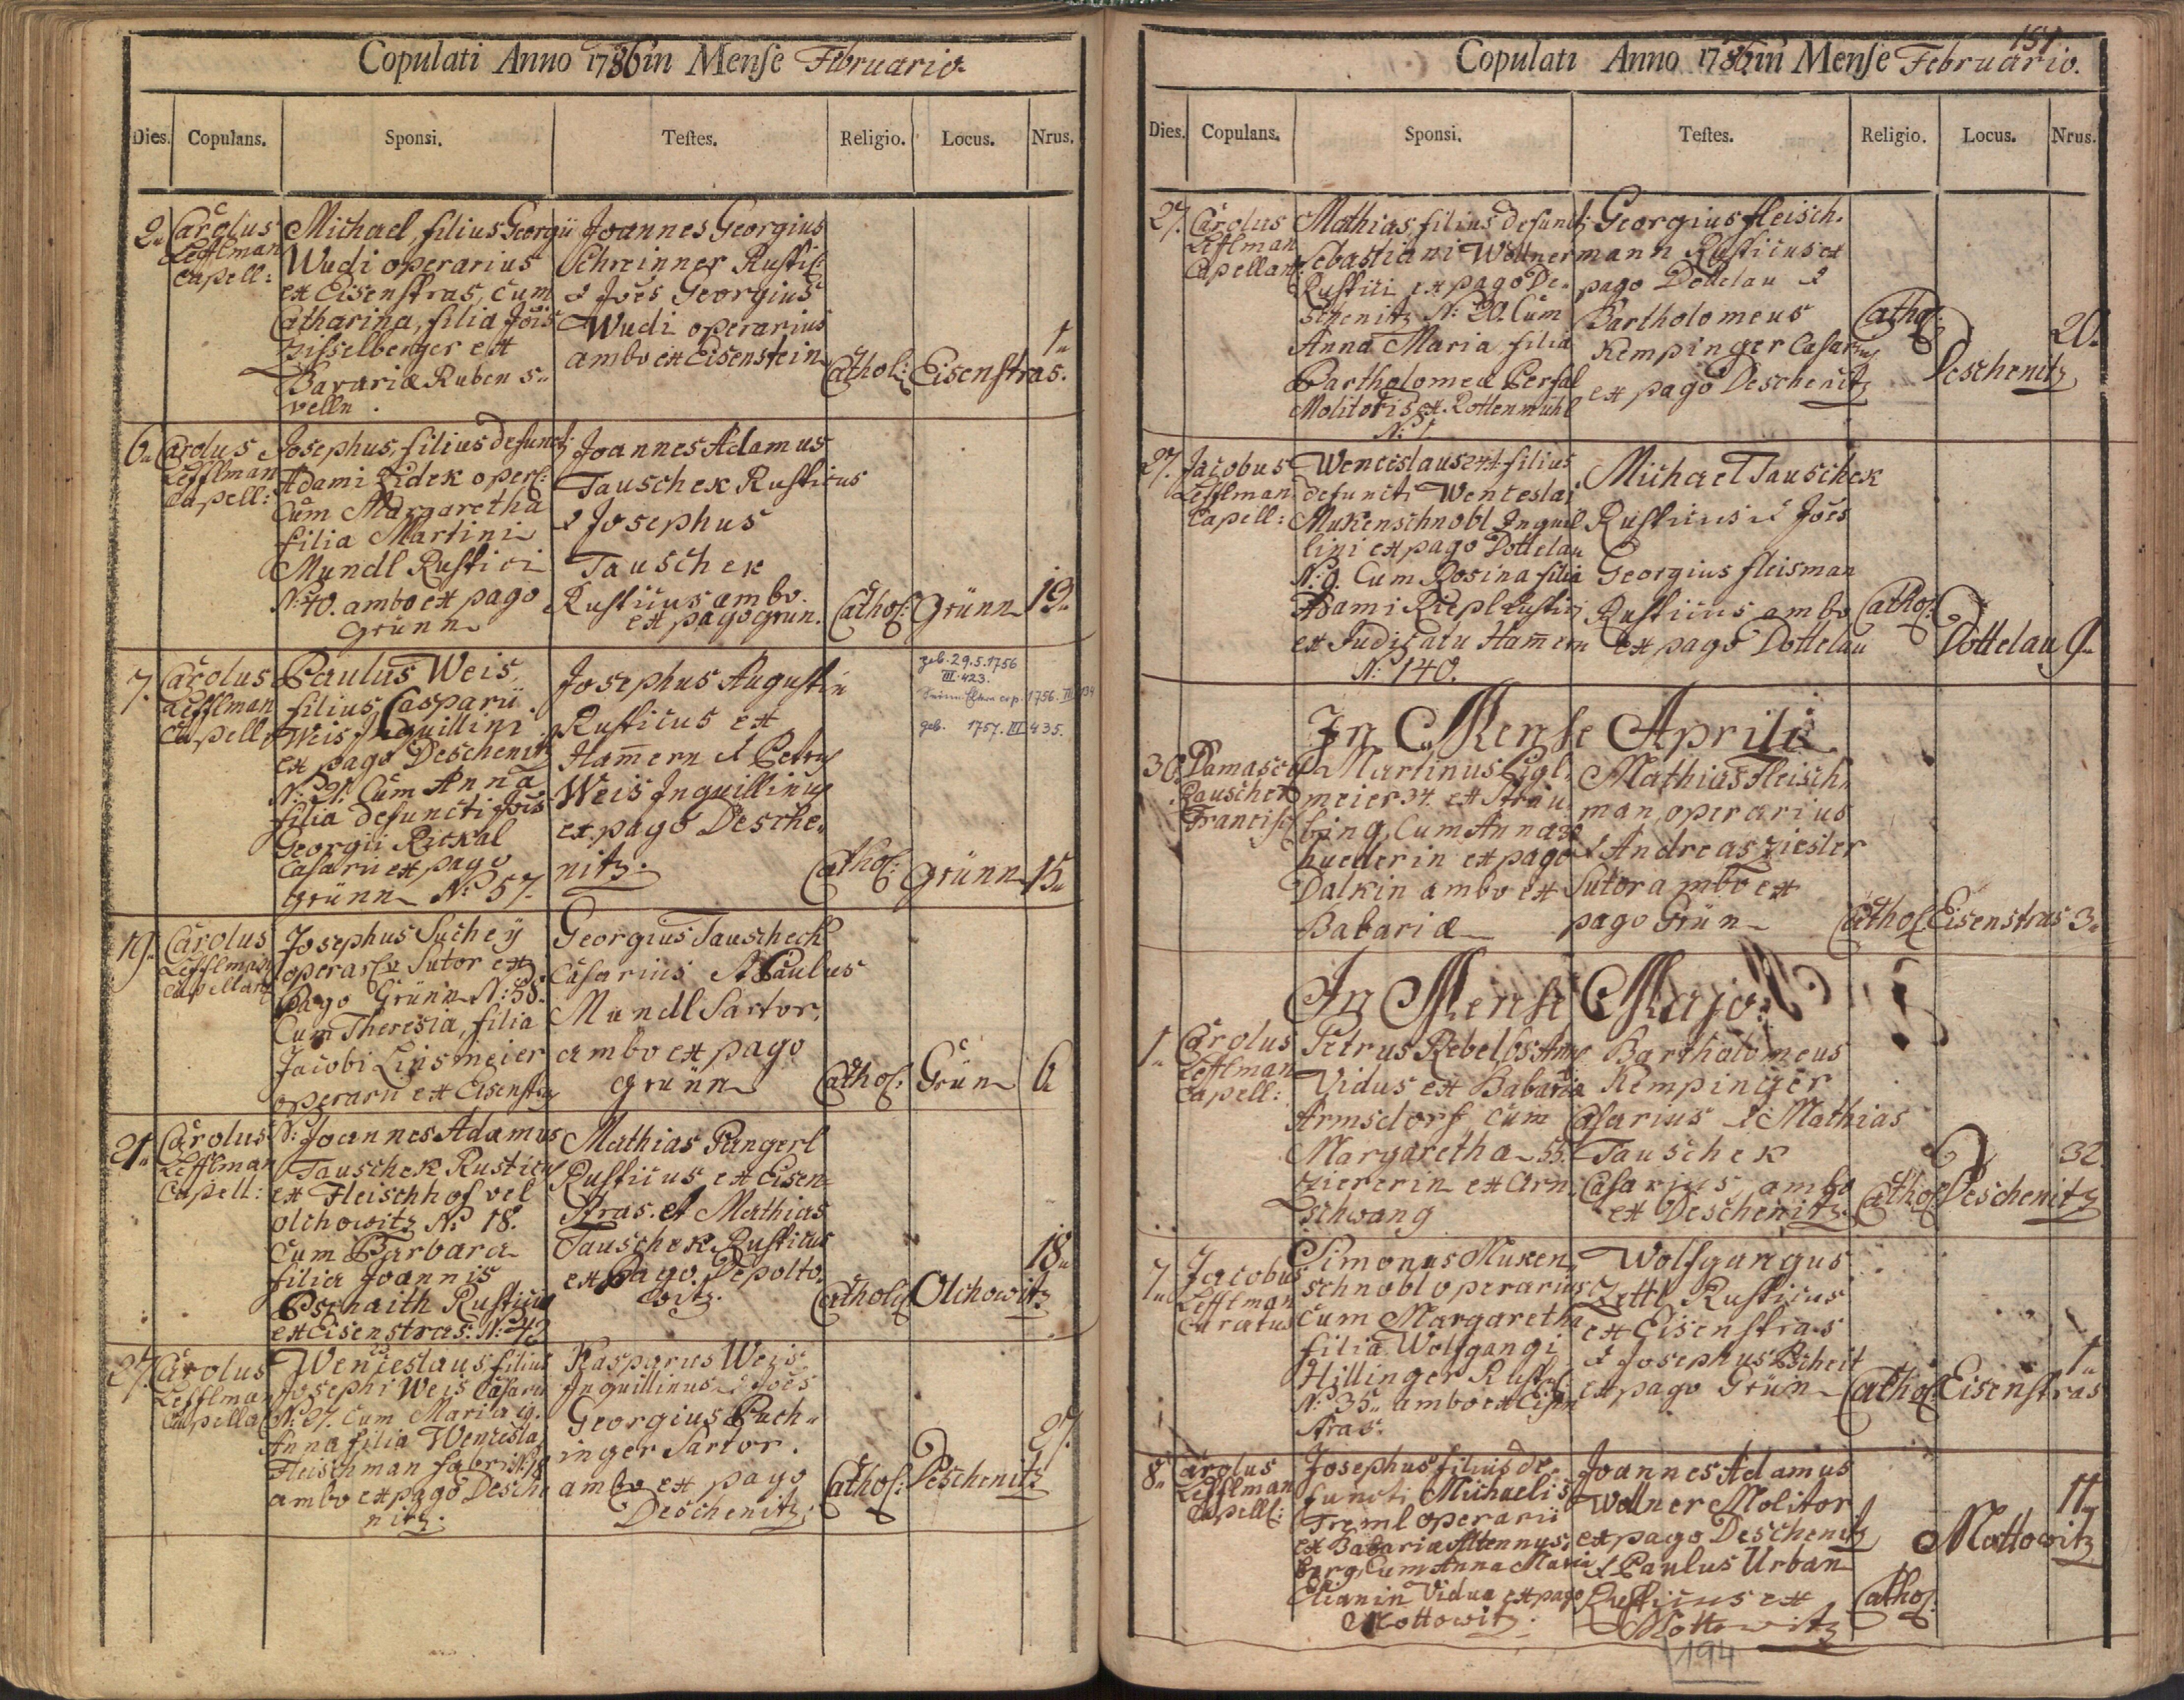 Copulati Anno 1786 in Mense Februario.
Dies. Copulans. Sponsi. Testes. Religio. Locus. Nrus.
2. Carolus Lefflman Capell:
Michael, filius Georgii
Wudi operarius
ex Eisenstras, cum
Catharina, filia Jois
Zisselberger ex
Bavariæ Ruben s=
velln.
Joannes Georgius
Schreinner Rustic
& Joes Georgius
Wudi operarius
ambo ex Eisenstein
Cathol: Eisenstras. 1.
6. Carolus Lefflman Capell:
Josephus, filius defuncti
Adami Zidek oper:
Cum Margaretha
filia Martini
Mundl Rustici
N: 40. ambo ex pago
Grünn
Joannes Adamus
Tauschek Rusticus
& Josephus
Tauschek
Rusticus ambo.
ex pago grün.
Cathol: Grünn 19.
7. Carolus Lefflman Capell:
Paulus Weis,
filius Casparii
Weis Inquillini
ex pago Deschenitz
N: 21. Cum Anna
filia defuncti Jois
Georgii Rickal
Casarii ex pago
grünn N: 57.
Josephus Augustin
Rusticus ex
Ham̄ern & Petrus
Weis Inquillinus
ex pago Desche=
nitz.
geb. 29.5.1756
III. 423.
geb. 1757. III 435.
Cathol: Grünn 15.
19. Carolus Lefflman Capellan
Josephus Suchey
operar: & Sutor ex
Pago Grünn N: 58.
Cum Theresia, filia
Jacobi Linsmeier
operarii ex Eisenstras
Georgius Tauscheck
Casarius & Paulus
Mundl Sartor,
ambo ex pago
grünn
Cathol: Grün 6
21. Carolus Lefflman Capell:
N: Joannes Adamus
Tauschek Rusticus
ex Fleischhof vel
olchowitz N: 18.
Cum Barbara
filia Joannis
Pschaith Rustici
ex Eisenstras: N: 43
Mathias Pangerl
Rusticus ex Eisen=
stras. et Mathias
Tauschek Rusticus
ex Pago Depolto=
witz.
Cathol: Olchowitz 18.
27. Carolus Lefflman Capellan
Wenceslaus, filius
Josephi Weis Casarii
N: 27. Cum Maria
Anna filia Wenzesla
Fleischman fabri
ambo ex pago Desche
nitz.
Kasparus Weis
Inquillinus & Joes
Georgius Puch=
inger Sartor.
ambo ex pago
Deschenitz.
Cathol: Deschenitz 27.
151
Copulati Anno 1786 in Mense Februario.
Dies. Copulans. Sponsi. Testes. Religio. Locus. Nrus.
27. Carolus Lefflman Capellan
Mathias, filius defuncti
Sebastiani Wollner
Rustici ex pago De=
schenitz N: 20. Cum
Anna Maria filia
Bartholomea Persal
Molitoris ex Rottenmühl
N: 1.
Georgius fleisch=
mann Rusticus ex
pago Dottelau &
Bartholomeus
Kempinger Casarius
ex pago Deschenitz
Cathol: Deschenitz 20.
27. Jacobus Lefflman Capell:
Wenceslaus 24. filius
defuncti Wenteslai
Mukenschnobl Inquil
lini ex pago Dottelau
N: 9. Cum Rosina filia
Adami Riepl Rustici
ex Judicatu Ham̄ern
N: 140.
Michael Tauschek
Rusticus & Joes
Georgius fleisman
Rusticus ambo
ex pago Dottelau
Cathol: Dottelau 9.
In Mense Aprili
30. Damasce Rauscher Francisc
Martinus Eigl=
meier 34. ex Strau
bing, Cum Anna
huederin ex pago
Dalkin ambo ex
Babariæ
Mathias Fleisch=
man, operarius
& Andreas Ziesler
Sutor ambo ex
pago Grün
Cathol Eisenstras 3.
In Mense Majo.
1. Carolus Lefflman Capell:
Petrus Rebel
Vidus ex Babaria
Armsdorf Cum
Margaretha 55.
Ziererin ex Arn=
schwang
Bartholomeus
Kempinger
Casarius & Mathias
Tauschek
Casarius ambo
ex Deschenitz
Cathol Deschenitz 32.
7. Jacobus Lefflman Curatus
Simonus Muken=
schnobl operarius
Cum Margaretha
filia Wolfgangi
Hillinger Rust:
N: 35. ambo ex Eisen
stras.
Wolfgangus
Zettl Rusticus
ex Eisenstras
& Josephus Pscheit
ex pago Grün
Cathol Eisenstras 1.
8. Carolus Lefflman Capell:
Josephus filius de=
functi Michaelis
Treml operarii
ex Babariæ Altennus=
berg, Cum Anna Maria
Vidua ex pago
Mottowitz.
Joannes Adamus
Wollner Molitor
ex pago Deschenitz
& Paulus Urban
Rusticus ex
Mottowitz
Cathol. Mottowitz 11.
194